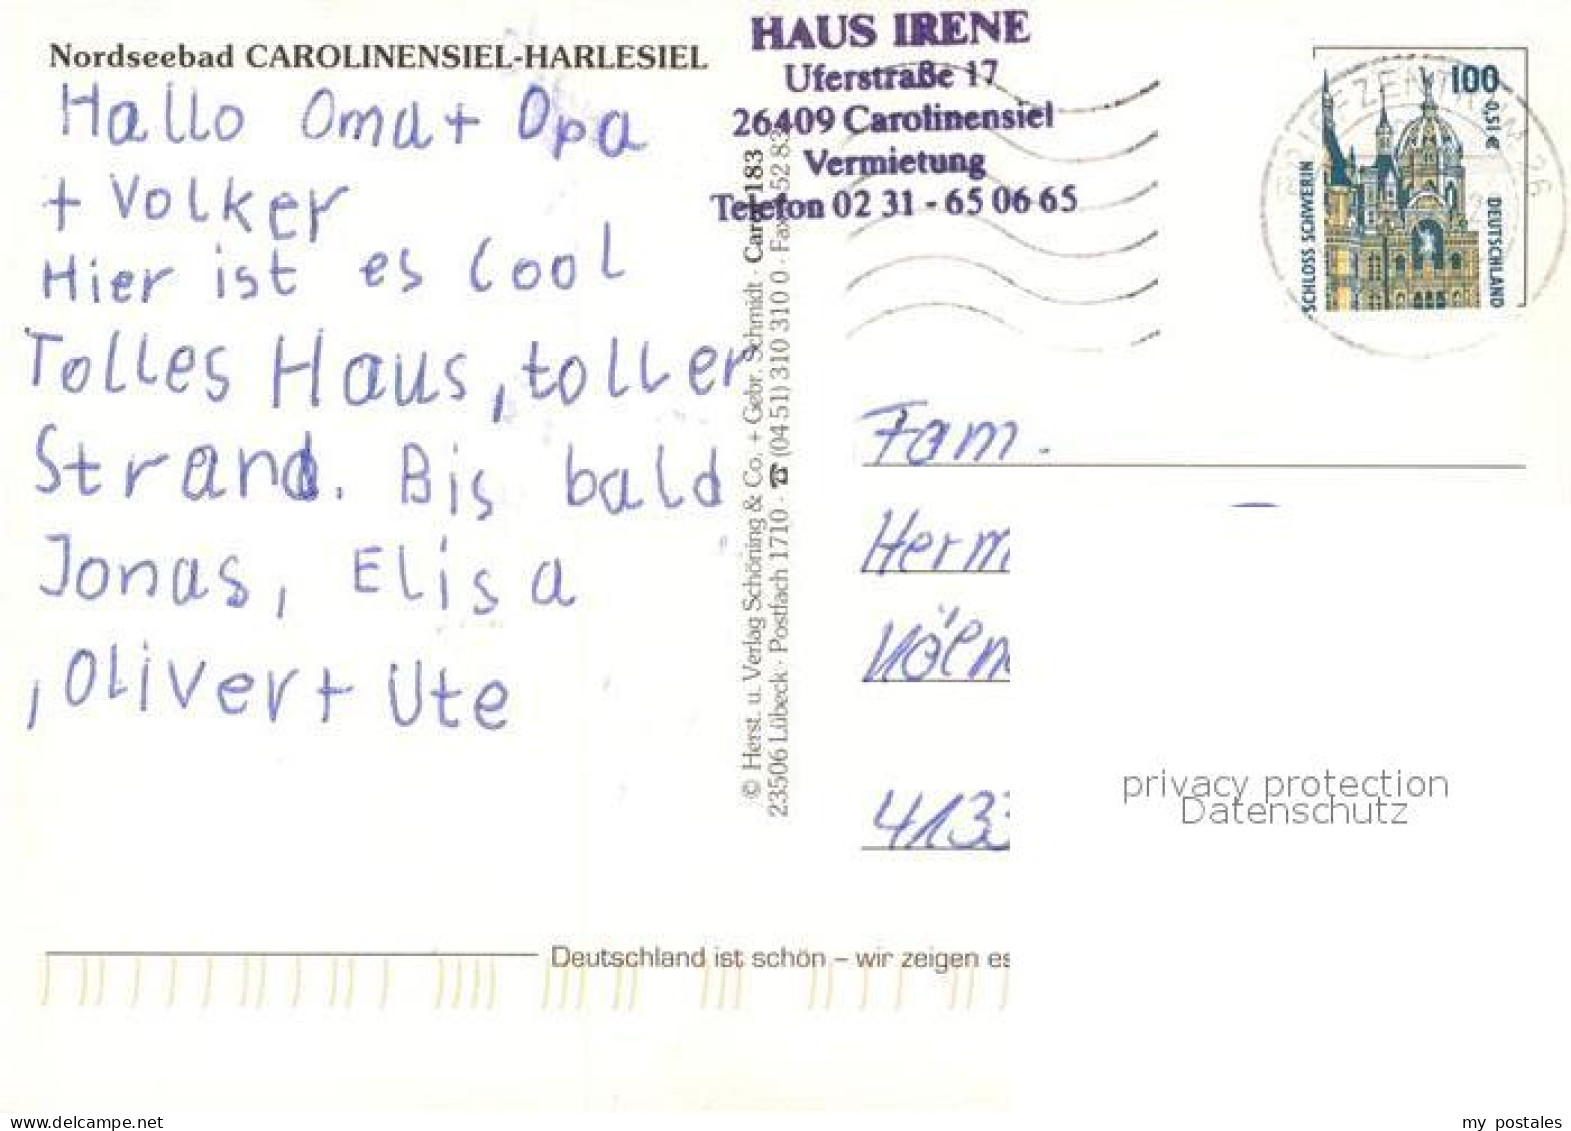 Nordseebad CAROLINENSIEL-HARLESIEL
Hallo Oma + Opa
+ Volker
Hier ist es cool
Tolles Haus, toller
Strand. Bis bald
Jonas, Elisa
, Oliver + Ute
© Herst. u. Verlag Schöning & Co. + Gebr. Schmidt · Caro 183
23506 Lübeck · Postfach 1710 · ☎ (04 51) 310 310 0 · Fax 52 83
HAUS IRENE
Uferstraße 17
26409 Carolinensiel
Vermietung
Telefon 02 31 - 65 06 65
100
0,51 €
SCHLOSS SCHWERIN
DEUTSCHLAND
BRIEFZENTRUM 26
Fam.
Herm
4133
Deutschland ist schön – wir zeigen es
privacy protection
Datenschutz
my postales